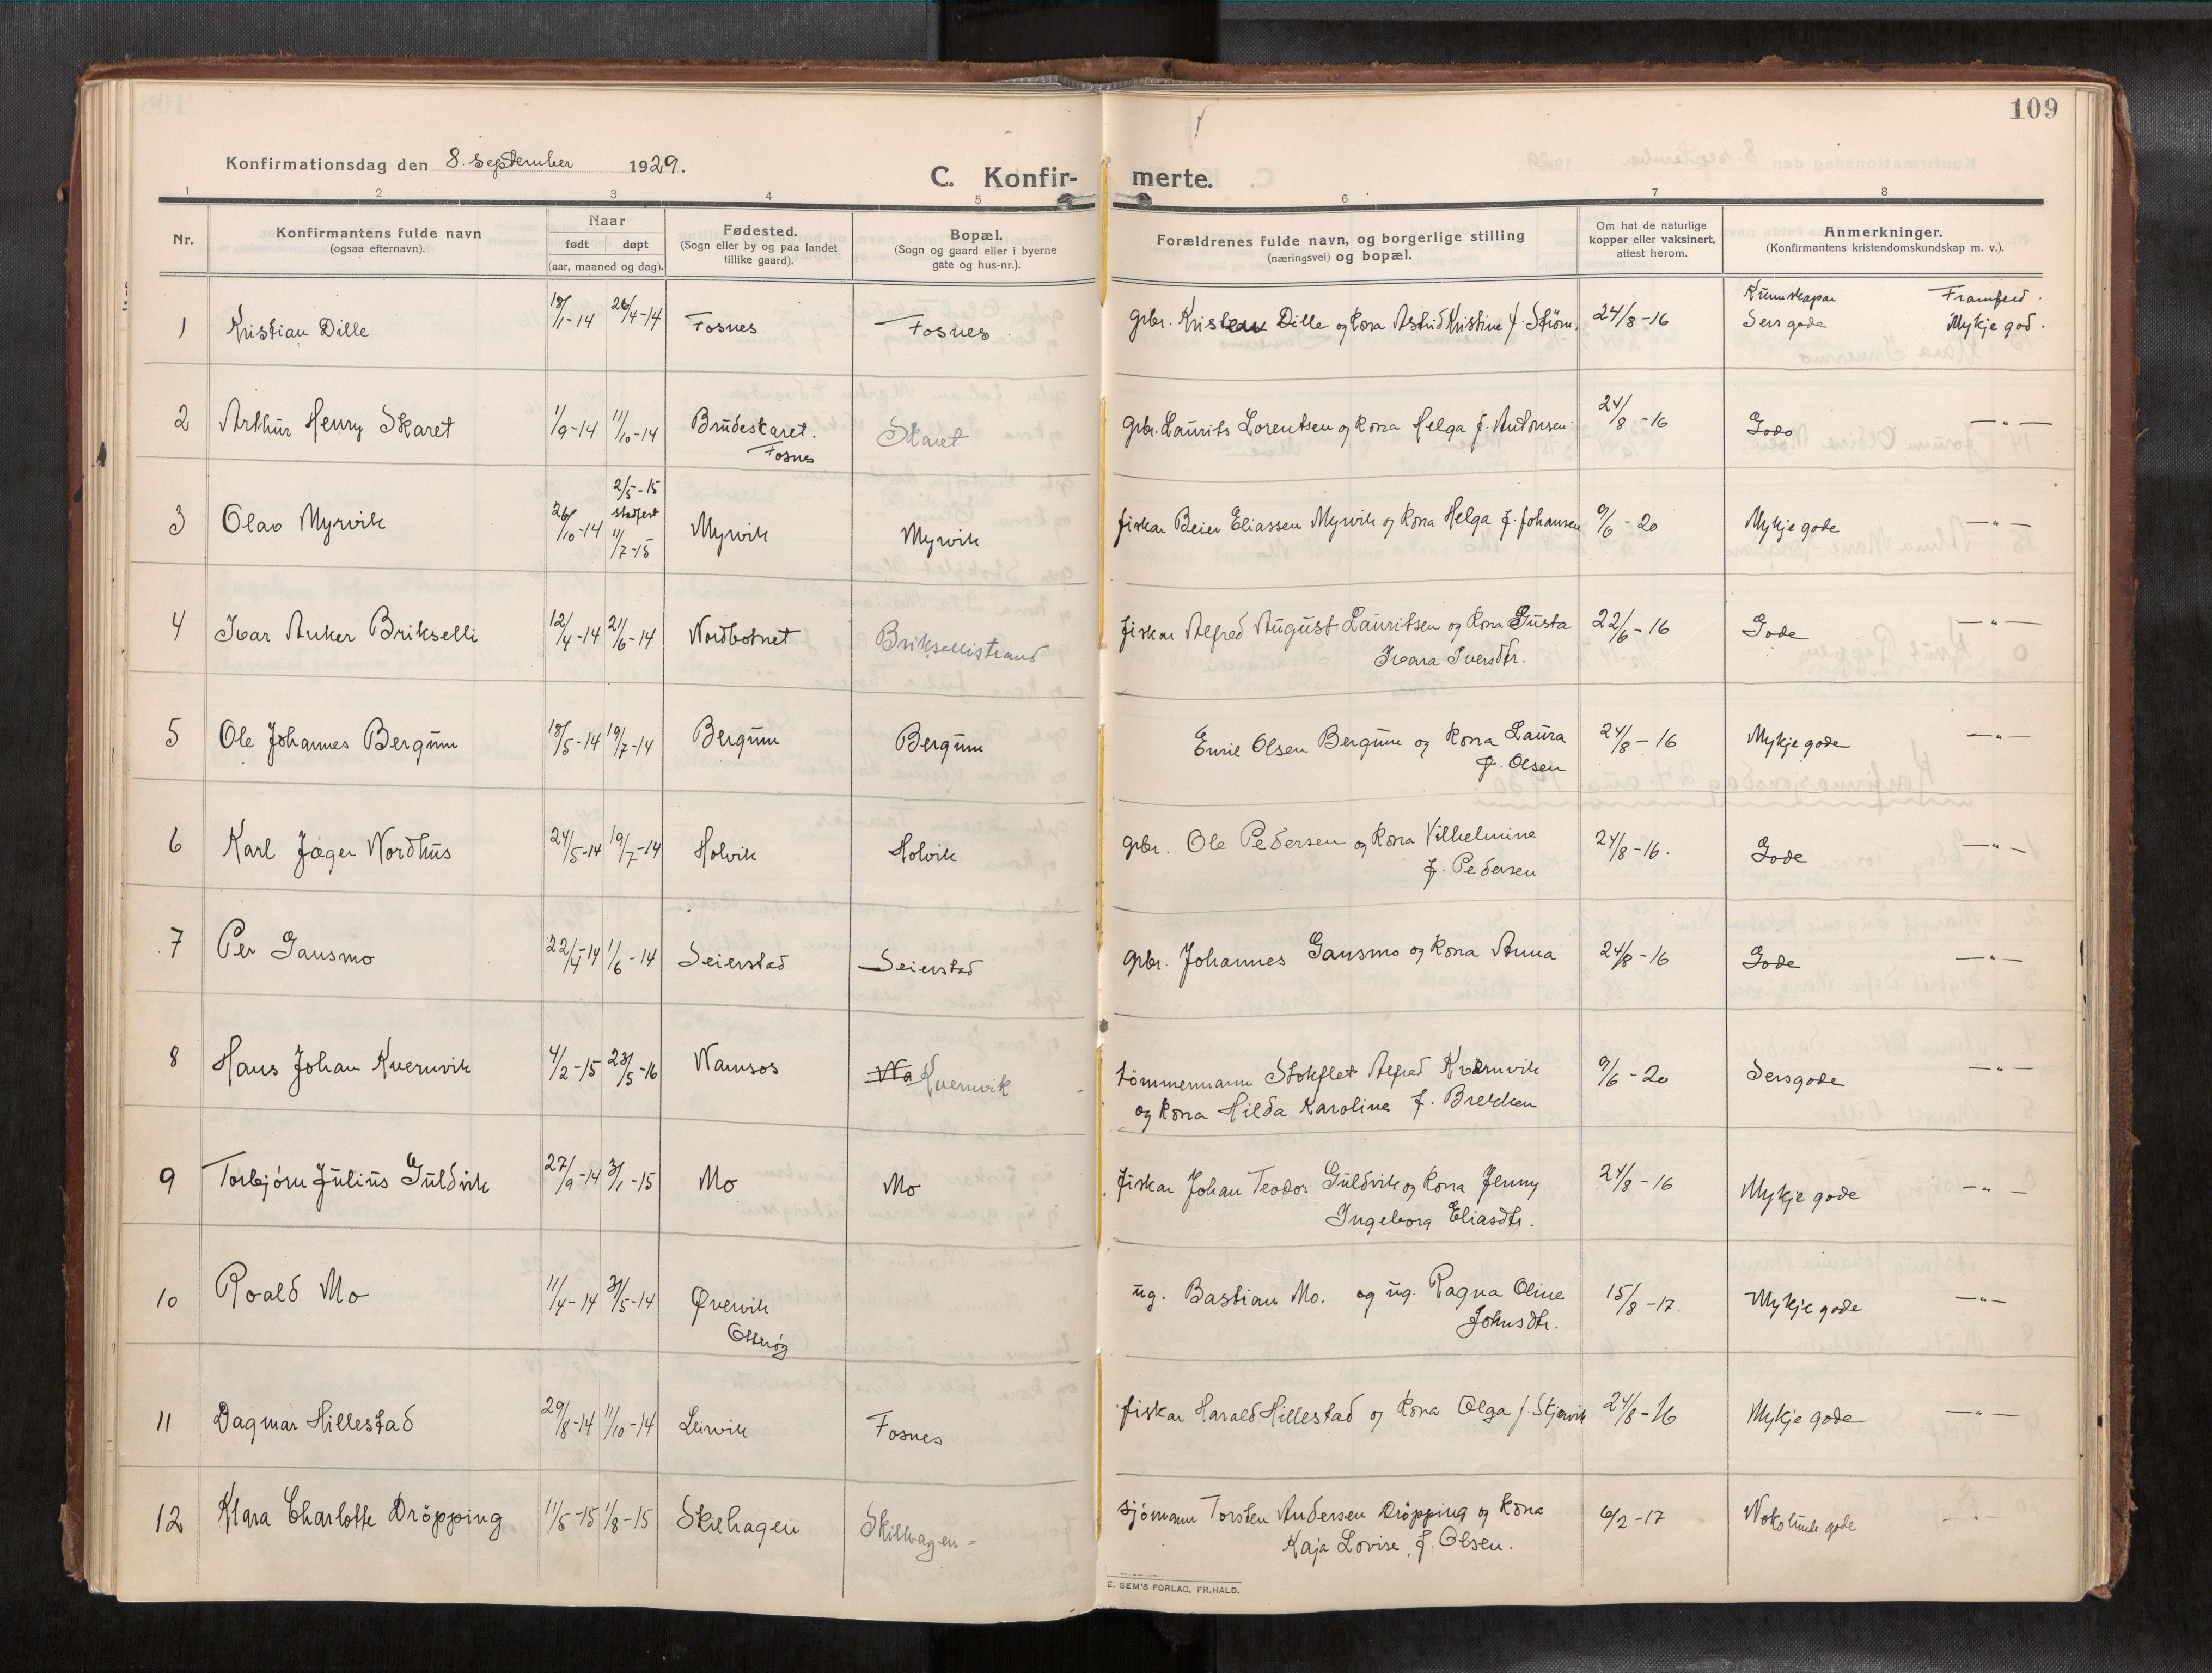 109
Konfirmationsdag den 8. september 1929.
C. Konfir- merte.
1 2 3 4 5 6 7 8
Nr.
Konfirmantens fulde navn
(ogsaa efternavn).
Naar
født døpt
(aar, maaned og dag).
Fødested.
(Sogn eller by og paa landet
tillike gaard).
Bopæl.
(Sogn og gaard eller i byerne
gate og hus-nr.).
Forældrenes fulde navn, og borgerlige stilling
(næringsvei) og bopæl.
Om hat de naturlige
kopper eller vaksinert,
attest herom.
Anmerkninger.
(Konfirmantens kristendomskundskap m. v.).
Kunnskapar Framferd.
1 Kristian Dille 18/1-14 26/4-14 Fosnes Fosnes gbr. Kristen Dille og kona Astrid Kristine f. Strøm. 24/8-16 Sers gode Mykje god.
2 Arthur Henry Skaret 1/9-14 11/10-14 Brudeskaret. Skaret gbr. Laurits Lorentsen og kona Helga f. Antonsen 24/8-16 Gode —"—
Fosnes
2/5-15
stadfest
3 Olav Myrvik 26/10-14 11/7-15 Myrvik Myrvik fiskar Beier Eliassen Myrvik og kona Helga f. Johansen 9/6-20 Mykje gode —"—
4 Ivar Anker Brikselli 12/4-14 21/6-14 Nordbotnet Briksellistrand fiskar Alfred August Lauritsen og kona Gusta 22/6-16 Gode —"—
Ivara Iversdtr.
5 Ole Johannes Bergum 18/5-14 19/7-14 Bergum Bergum Emil Olsen Bergum og kona Laura 24/8-16 Mykje gode —"—
f. Olsen
6 Karl Jæger Nordhus 24/5-14 19/7-14 Holvik Holvik gbr. Ole Pedersen og kona Vilhelmine 24/8-16. Gode —"—
f. Pedersen
7 Per Gansmo 22/4-14 1/6-14 Seierstad Seierstad gbr. Johannes Gansmo og kona Anna 24/8-16 Gode —"—
8 Hans Johan Kvernvik 4/2-15 23/5-16 Namsos Na Kvernvik tømmermann Stokflet Alfred Kvernvik 9/6-20 Sersgode —"—
og kona Hilda Karoline f. Brekken
9 Torbjørn Julius Guldvik 27/9-14 3/1-15 Mo Mo fiskar Johan Teodor Guldvik og kona Jenny 24/8-16 Mykje gode —"—
Ingeborg Eliasdtr.
10 Roald Mo 11/4-14 31/5-14 Øvervik ug. Bastian Mo. og ug. Ragna Oline 15/8-17. Mykje gode —"—
Otterøy Johnsdtr.
11 Dagmar Hillestad 29/8-14 11/10-14 Leirvik Fosnes fiskar Harald Hillestad og kona Olga f. Skjærvik 24/8-16 Mykje gode —"—
12 Klara Charlotte Dröpping 11/5-15 1/8-15 Skilhagen Skilhagen sjømann Torsten Andersen Dröpping og kona 6/2-17 Nokolunde gode —"—
Kaja Lovise, f. Olsen.
E. SEM'S FORLAG, FR.HALD.